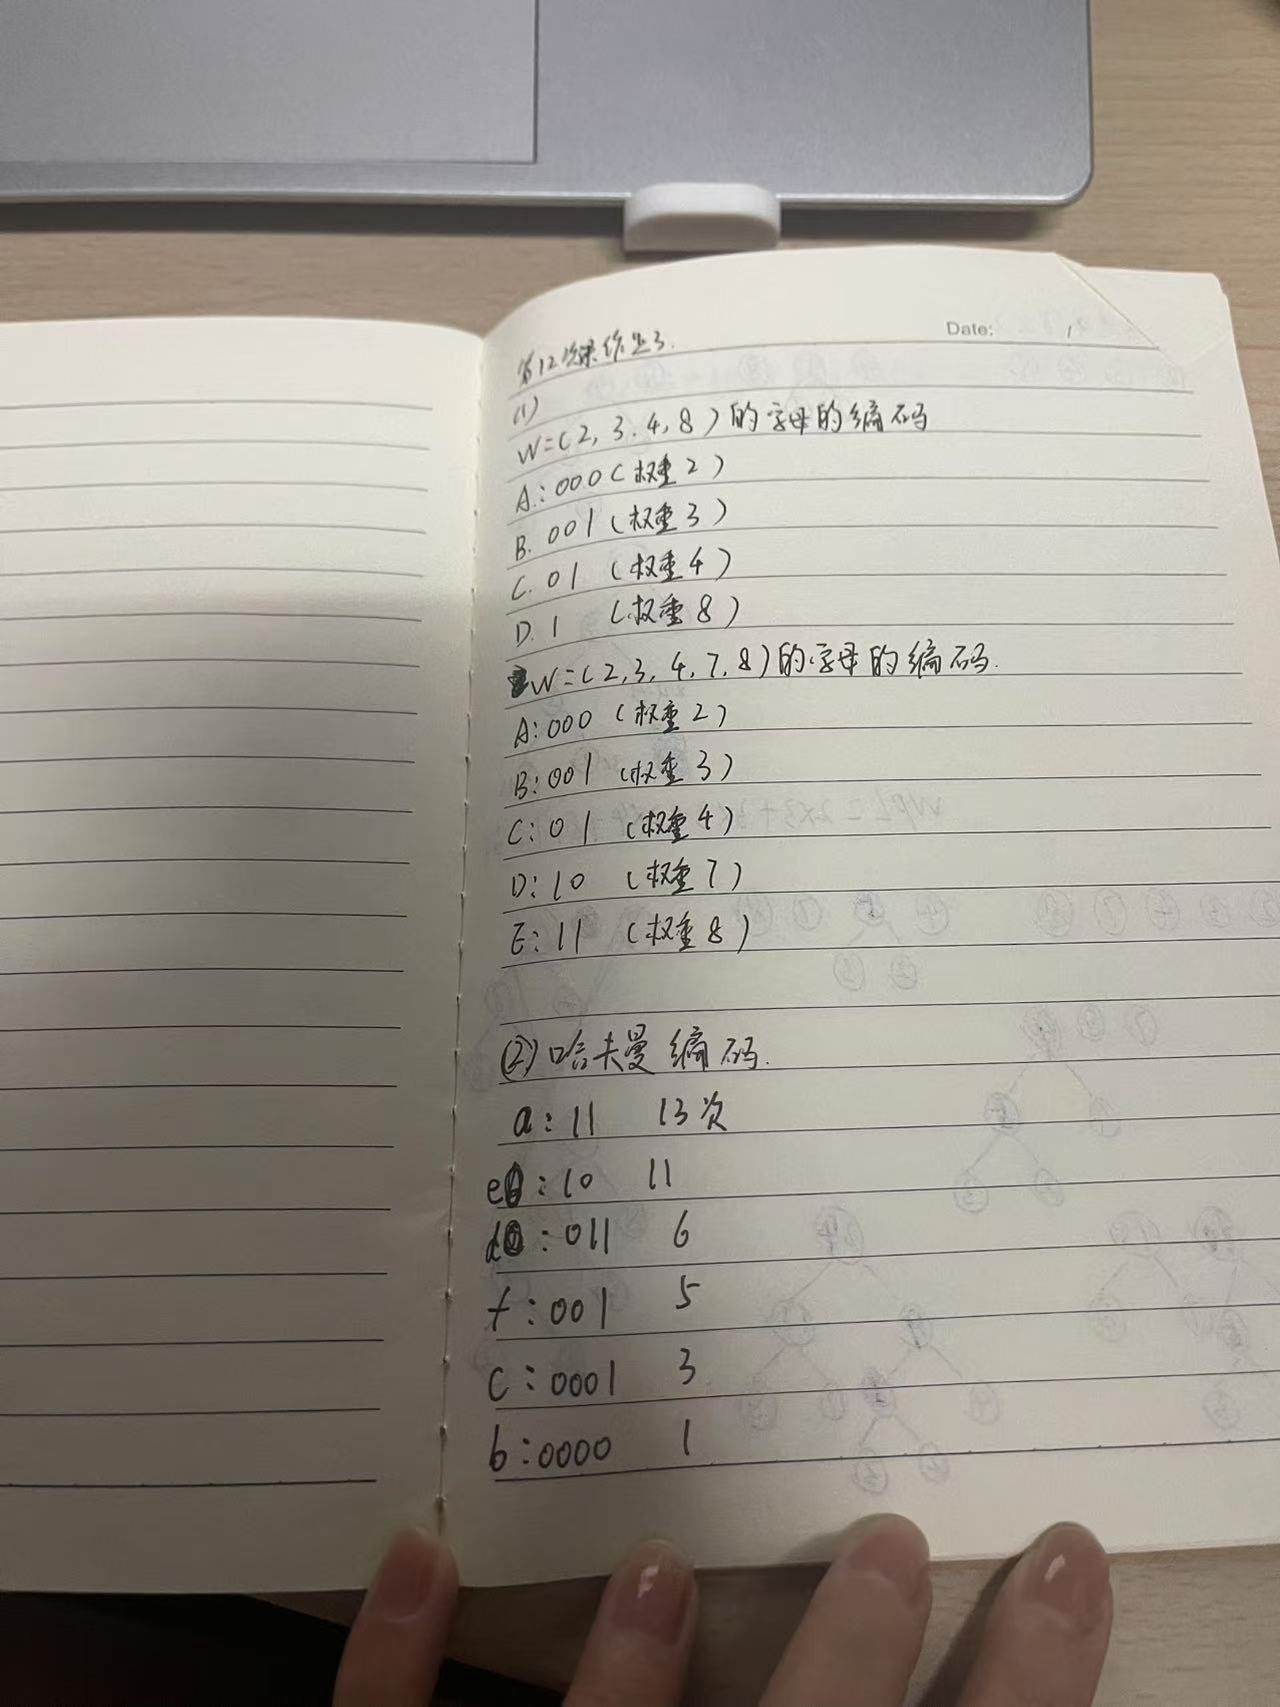 Date:
第12次课作业3.
(1)
W=(2,3.4,8)的字母的编码
A.:000(权重2)
B.001(权重3)
C.01(权重4)
D.1(权重8)
W=(2,3,4,7,8)的字母的编码.
A:000(权重2)
B:001(权重3)
C:01(权重4)
D:10(权重7)
E:11(权重8)
(2)哈夫曼编码.
a:11 13次
e:10 11
d:011 6
f:001 5
c:0001 3
b:0000 1